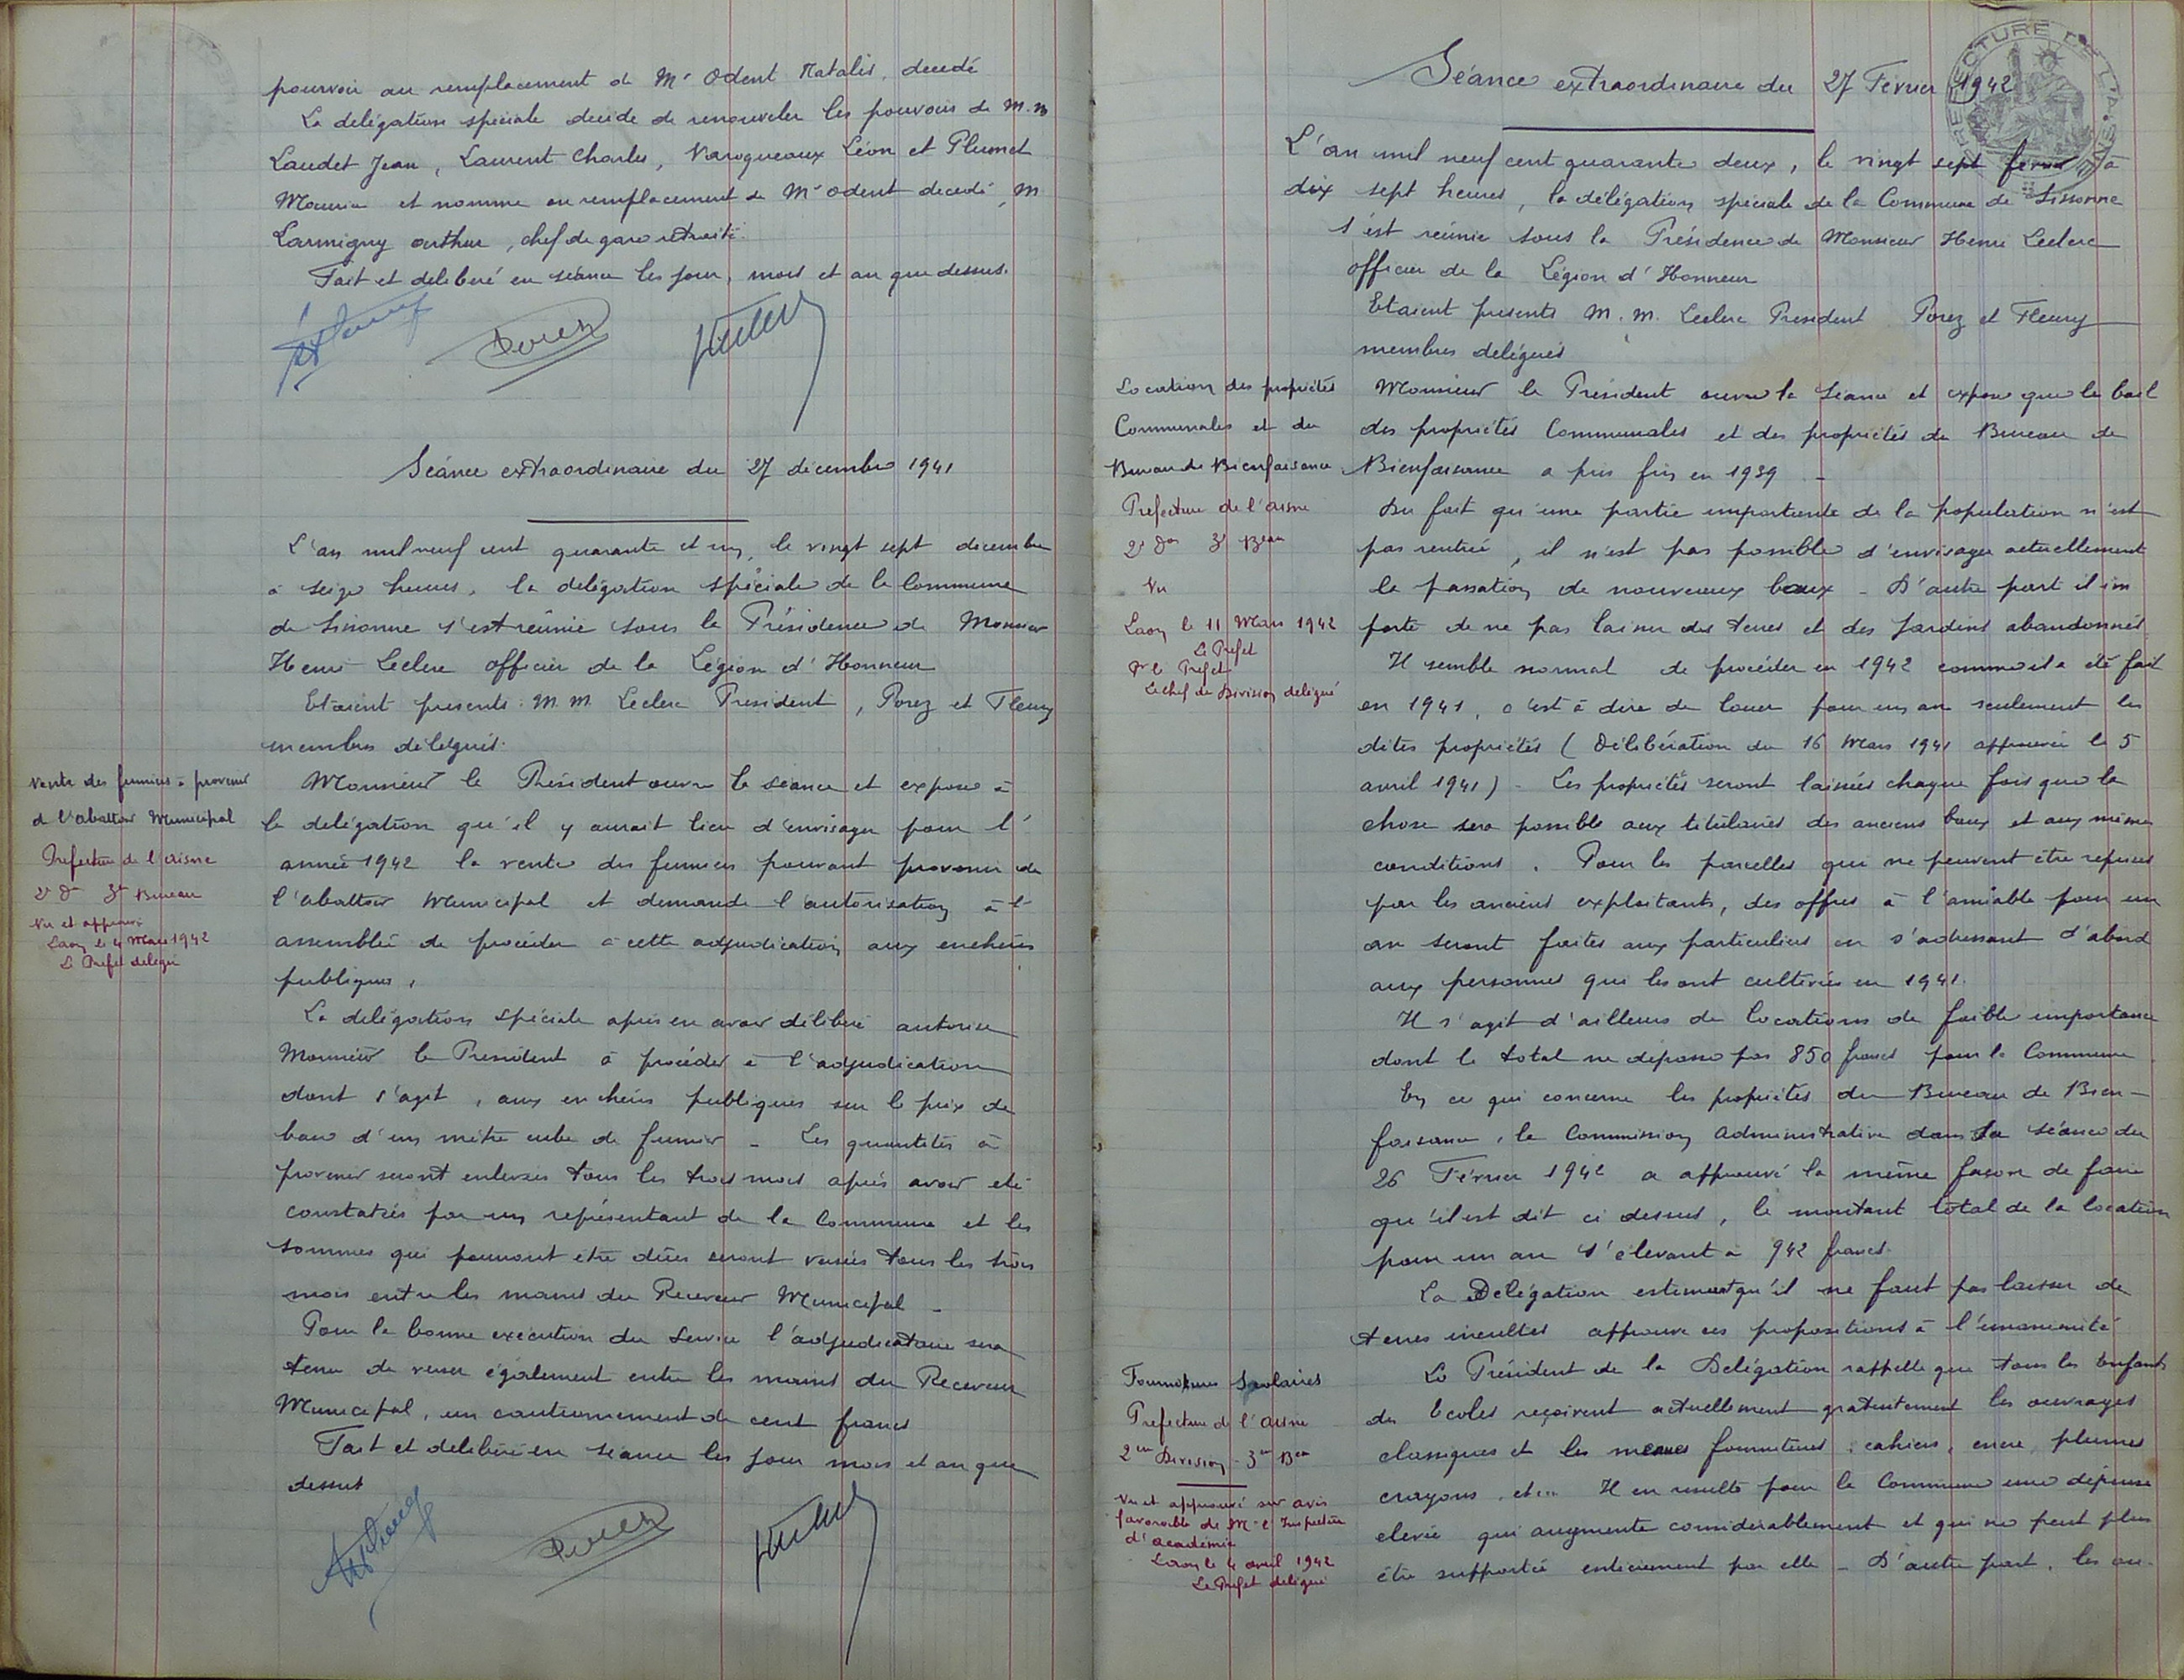 pourvoir au remplacement de Mr Odent Natalis, decedé
La delégation speciale decide de renouveler les pouvoirs de M.M
Laudet Jean, Laurent Charles, Varoqueaux Léon et Plumet
Maurice et nomme en remplacement de Mr Odent decedé, M
Larmigny arthur, chef de gare retraité.
Fait et deliberé en séance les jour, mois et an que dessus.
Séance extraordinaire du 27 décembre 1941
L'an mil neuf cent quarante et un, le vingt sept decembre
à seize heures, la delégation spéciale de la Commune
de Sissonne s'est réunie sous la Présidence de Monsieur
Henri Leclerc officier de la Légion d'Honneur
Etaient presents : M.M. Leclerc President, Porez et Fleury
membres délégués.
Vente des fumiers à provenir
de l'abattoir Municipal
Préfecture de l'aisne
2e Don 3e Bureau
Vu et approuvé
Laon le 4 Mars 1942
Le Prefet delégué
Monsieur le Président ouvre la séance et expose à
la delégation qu'il y aurait lieu d'envisager pour l'
année 1942 la vente des fumiers pouvant provenir de
l'abattoir Municipal et demande l'autorisation à l'
assemblée de procéder à cette adjudication aux enchères
publiques.
La delégation spéciale après en avoir délibéré autorise
Monsieur le President à procéder à l'adjudication
dont s'agit, aux enchères publiques sur le prix de
base d'un mètre cube de fumier - Les quantités à
provenir seront enlevées tous les trois mois après avoir été
constatées par un représentant de la Commune et les
sommes qui pourront être dûes seront versées tous les trois
mois entre les mains du Receveur Municipal -
Pour la bonne exécution du Service l'adjudicataire sera
tenu de verser également entre les mains du Receveur
Municipal, un cautionnement de cent francs
Fait et delibéré en séance les jour mois et an que
dessus
Séance extraordinaire du 27 Fevrier 1942
PREFECTURE DE L'AISNE
L'an mil neuf cent quarante deux, le vingt sept fevrier à
dix sept heures, la délégation spéciale de la Commune de Sissonne
s'est réunie sous la Présidence de Monsieur Henri Leclerc
officier de la Légion d'Honneur
Etaient presents M.M. Leclerc President Porez et Fleury
membres delégués
Location des propriétés
Communales et du
Bureau de Bienfaisance
Prefecture de l'aisne
2e Don 3e Beau
Vu
Laon le 11 Mars 1942
Le Prefet
Pr le Prefet
Le chef de Division delégué
Monsieur le Président ouvre la séance et expose que le bail
des propriétés Communales et des propriétés du Bureau de
Bienfaisance a pris fin en 1939 -
Du fait qu'une partie importante de la population n'est
pas rentrée, il n'est pas possible d'envisager actuellement
la passation de nouveaux baux - D'autre part il im
porte de ne pas laisser des terres et des jardins abandonnés
Il semble normal de procéder en 1942 comme il a été fait
en 1941, c'est à dire de louer pour un an seulement les
dites propriétés (Délibération du 16 Mars 1941 approuvée le 5
avril 1941) - Les propriétés seront laissées chaque fois que la
chose sera possible aux titulaires des anciens baux et aux mêmes
conditions. Pour les parcelles qui ne peuvent être reprises
par les anciens exploitants, des offres à l'amiable pour un
an seront faites aux particuliers en s'adressant d'abord
aux personnes qui les ont cultivées en 1941.
Il s'agit d'ailleurs de locations de faible importance
dont le total ne depasse pas 850 francs pour la Commune
En ce qui concerne les propriétés du Bureau de Bien-
faisance, la Commission administrative dans sa séance du
26 Février 1942 a approuvé la même façon de faire
qu'il est dit ci dessus, le montant total de la location
pour un an s'élevant à 942 francs.
La Delégation estimant qu'il ne faut pas laisser de
terres incultes approuve ces propositions à l'unanimité
Fournitures Scolaires
Prefecture de l'aisne
2me Division - 3me Beau
Vu et approuvé sur avis
favorable de Mr l'Inspecteur
d'académie
Laon le 4 avril 1942
Le Prefet delégué
Le Président de la Delégation rappelle que tous les Enfants
des Ecoles reçoivent actuellement gratuitement les ouvrages
classiques et les menues fournitures, cahiers, encre, plumes
crayons, etc.. Il en resulte pour la Commune une dépense
elevée qui augmente considérablement et qui ne peut plus
être supportée entièrement par elle - D'autre part, les ou-